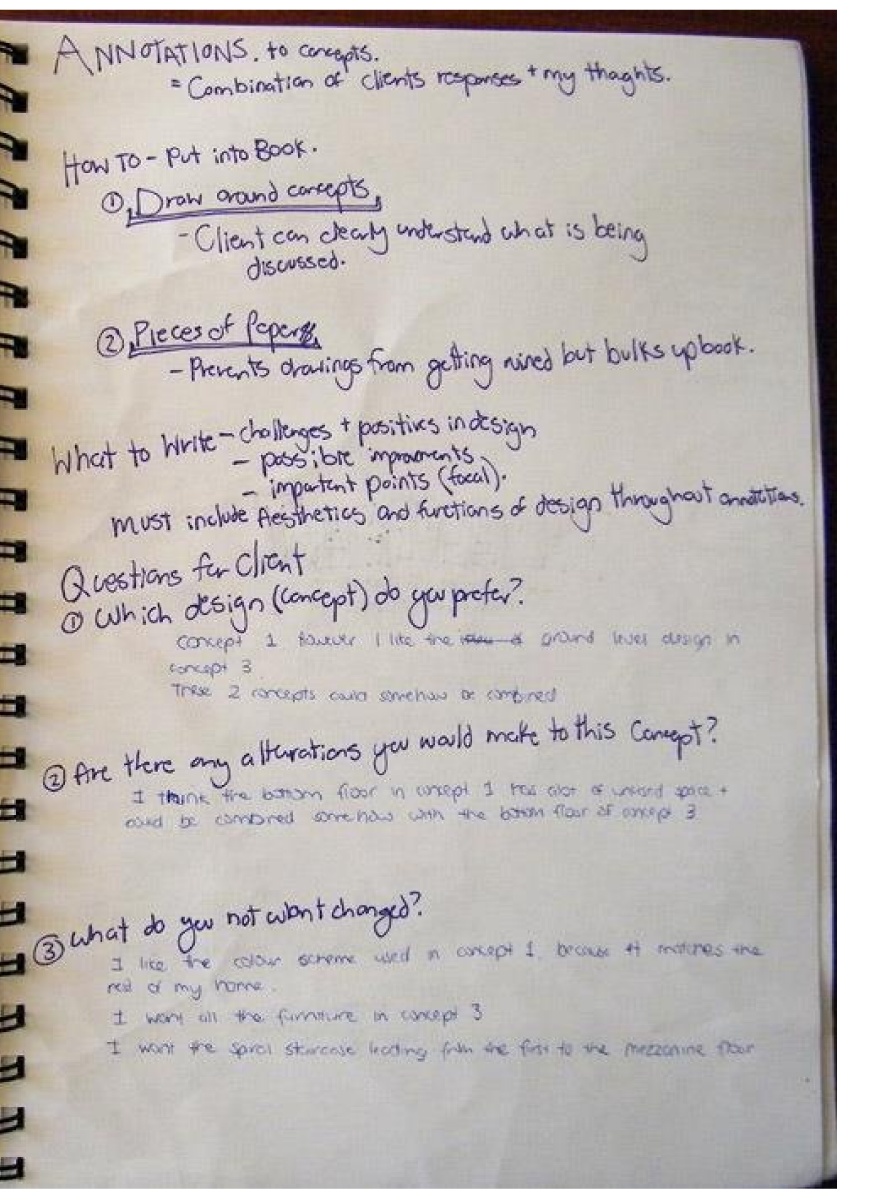 ANNOTATIONS. to concepts.
= Combination of clients responses + my thaghts.
How To - Put into Book.
① Draw around concepts,
- Client can clearly understand what is being
discussed.
② Pieces of Paper
- Prevents drawings from getting ruined but bulks up book.
What to Write - challenges + positives in design
- possible improvments
- important points (focal).
must include Aesthetics and functions of design throughout annotations.
Questions for Client
① Which design (concept) do you prefer?
concept 1 however I like the ground level design in
concept 3
These 2 concepts could somehow be combined
② Are there any alturations you would make to this Concept?
I think the bottom floor in concept 1 has alot of unused space +
could be combined somehow with the bottom floor of concept 3
③ What do you not want changed?
I like the colour scheme used in concept 1, because it matches the
rest of my home.
I want all the furniture in concept 3
I want the spiral staircase leading from the first to the mezzanine floor